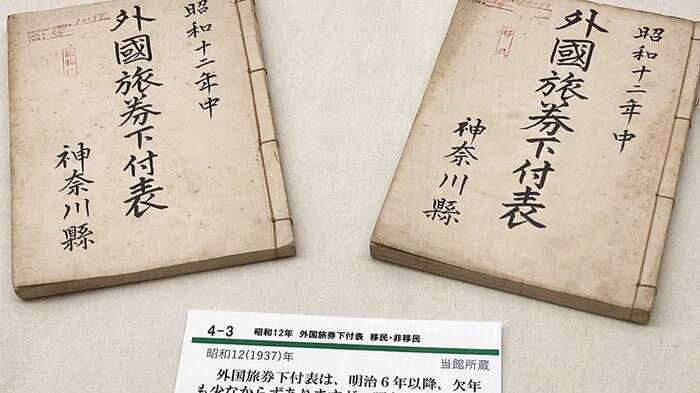 昭和十二年中
外國旅券下付表
神奈川縣
昭和十二年中
外國旅券下付表
神奈川縣
移民
4-3 昭和12年 外国旅券下付表 移民・非移民
昭和12(1937)年
当館所蔵
外国旅券下付表は、明治6年以降、欠年
も少なからずありますが、